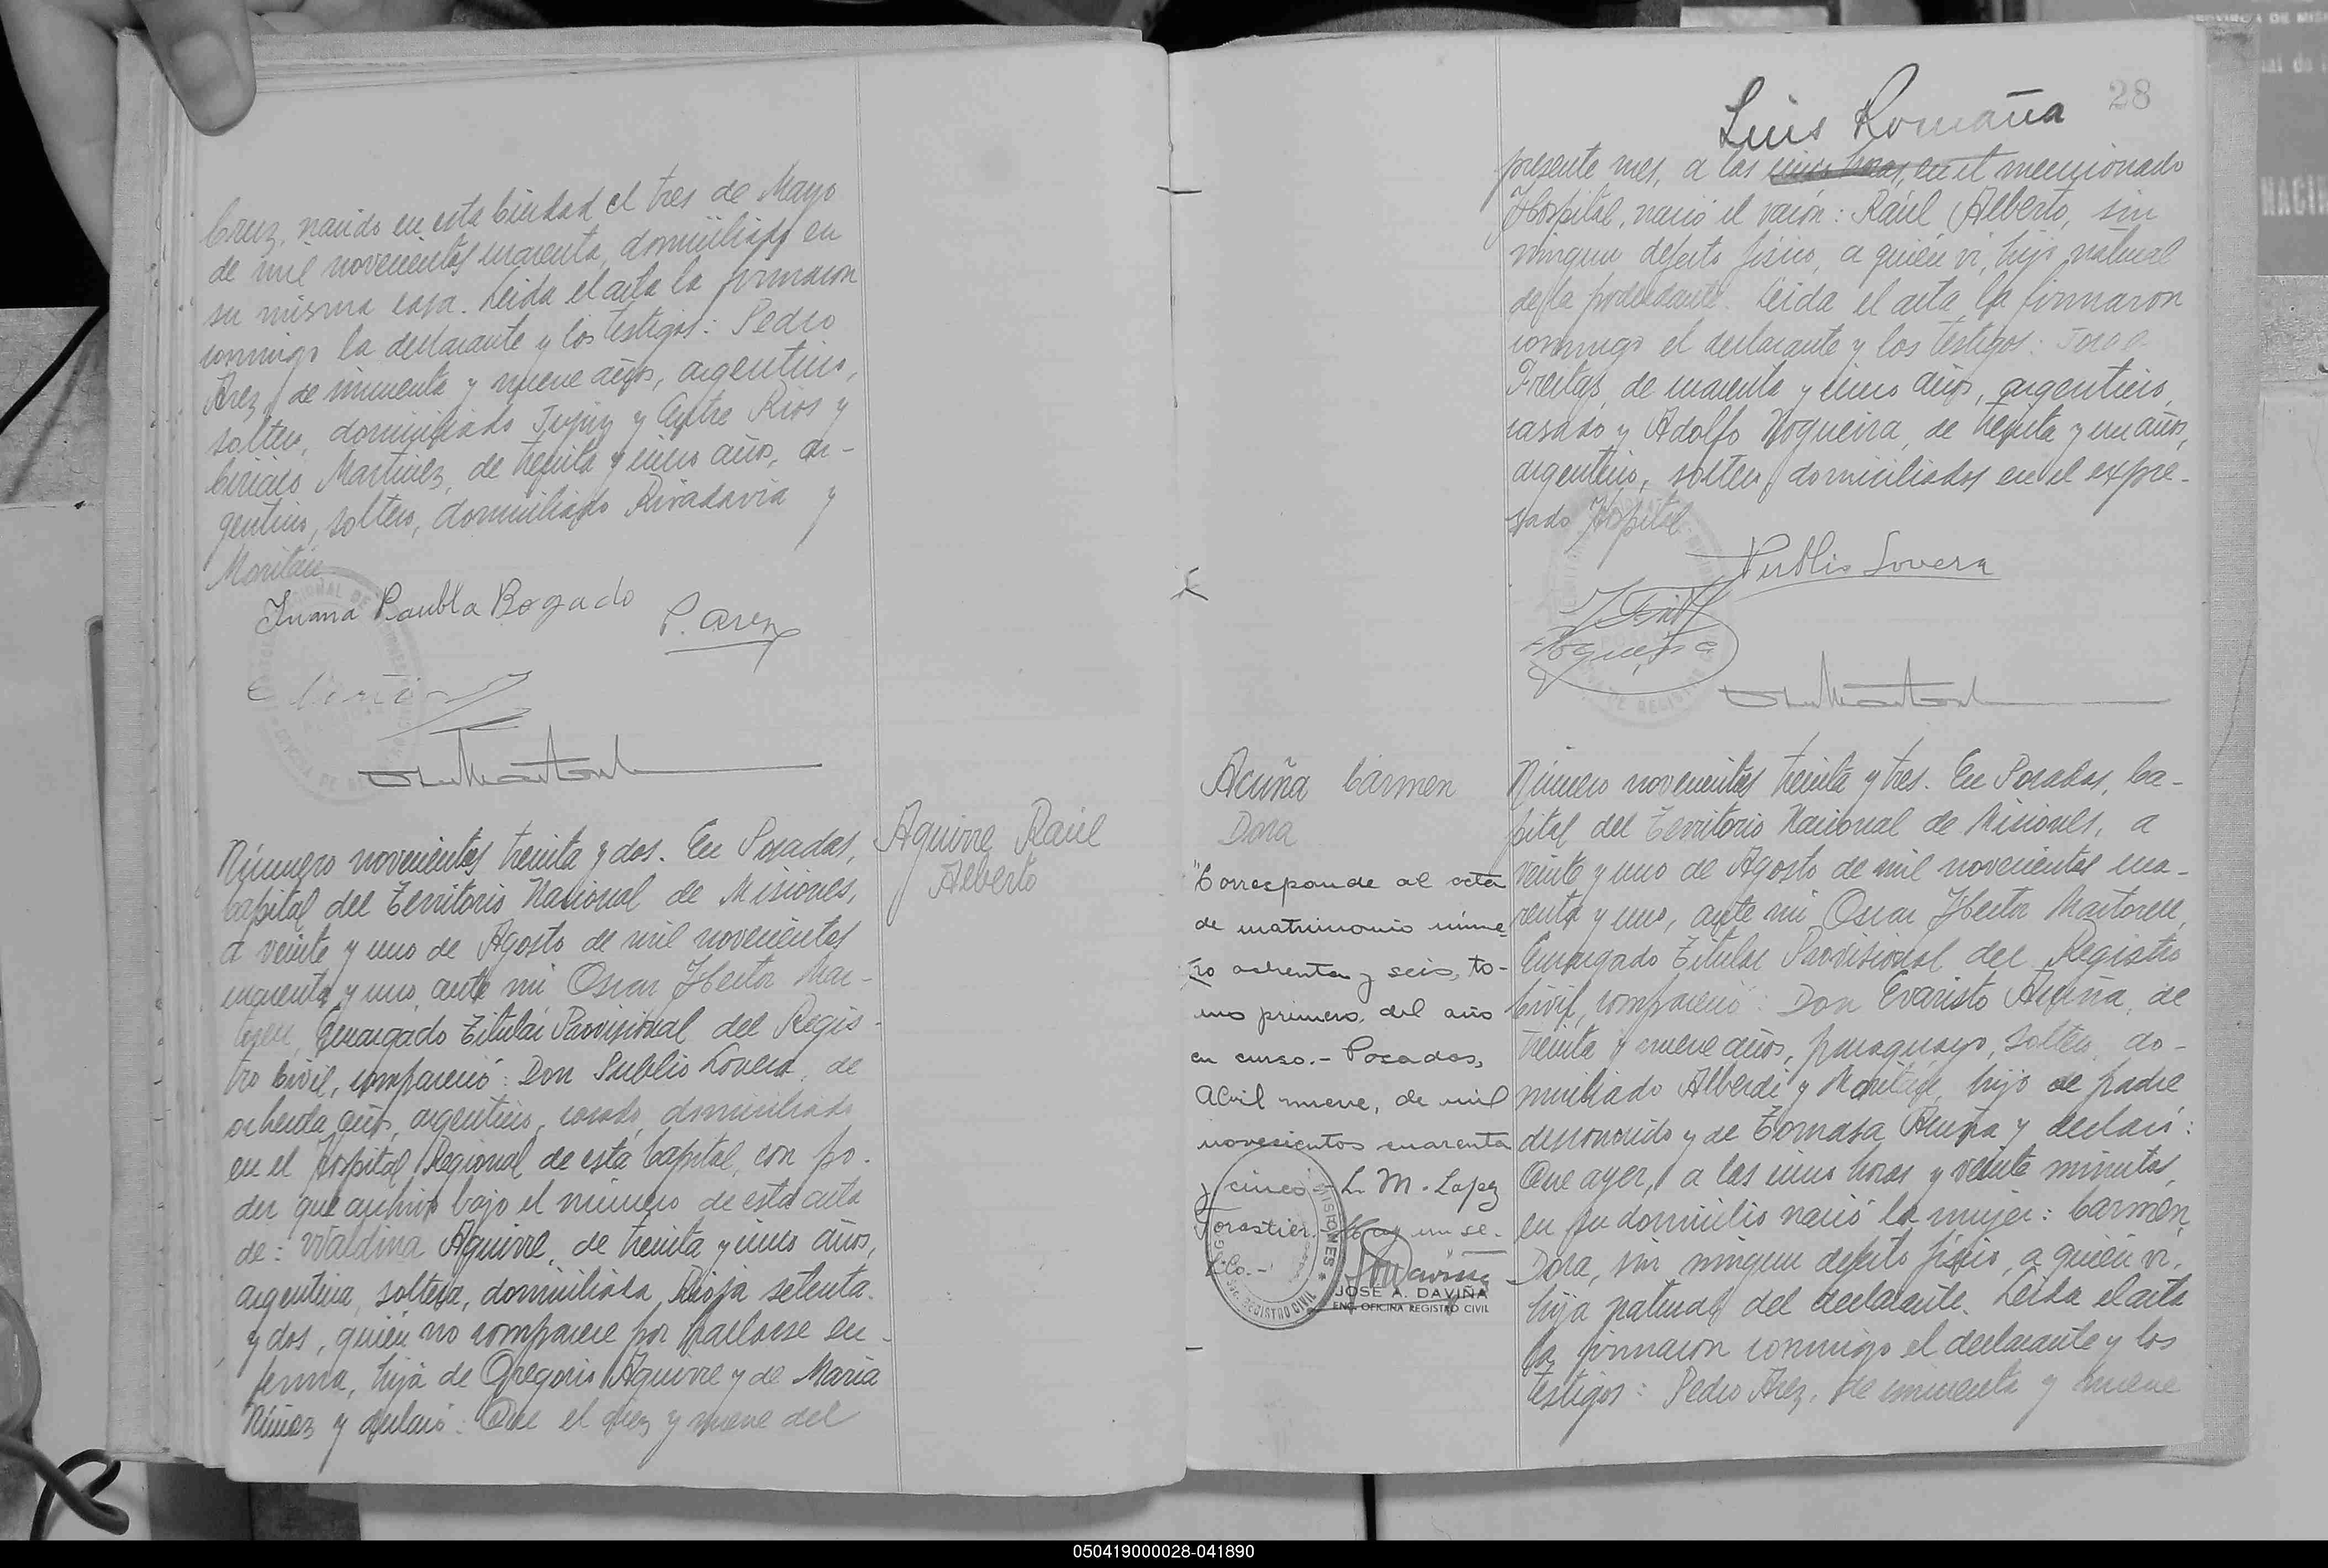 Cruz, nacido en esta Ciudad el tres de Mayo
de mil novecientos cuarenta, domiciliado en
su misma casa. Leida el acta la firmaron
conmigo la declarante y los testigos: Pedro
Arez, de cincuenta y nueve años, argentino,
soltero, domiciliado Jujuy y Entre Rios y
Ciriaco Martinez, de treinta y cinco años, ar-
gentino, soltero, domiciliado Rivadavia y
Maritain
Juana Paubla Bogado
P. Arez
Número novecientos treinta y dos. En Posadas,
Capital del Territorio Nacional de Misiones,
a veinte y uno de Agosto de mil novecientos
cuarenta y uno, ante mi Oscar Hector Mar-
torell, Encargado Titular Provisional del Regis-
tro Civil, compareció: Don Publio Lovera, de
ochenta años, argentino, casado, domiciliado
en el Hospital Regional de esta Capital, con po-
der que archivo bajo el número de esta acta
de: Waldina Aguirre, de treinta y cinco años,
argentina, soltera, domiciliada Rioja setenta
y dos, quien no comparece por hallarse en-
ferma, hija de Gregorio Aguirre y de Maria
Núñez y declaró: Que el diez y nueve del
Aguirre Raúl
Alberto
28
Luis Romaña
presente mes, a las cinco horas, en el mencionado
Hospital, nació el varón: Raúl Alberto, sin
ningun defecto fisico, a quién vi, hijo natural
de la poderdante. Leida el acta la firmaron
conmigo el declarante y los testigos: Jorge
Freitas, de cuarenta y cinco años, argentino,
casado y Adolfo Nogueira, de treinta y un años,
argentino, soltero, domiciliados en el expre-
sado Hospital
Publio Lovera
Acuña Carmen
Dora
"Corresponde al acta
de matrimonio núme-
ro ochenta y seis, to-
mo primero, del año
en curso.- Posadas,
Abril nueve, de mil
novecientos cuarenta
y cinco.- L. M. Lopez
Forastier.- Hay un se-
llo.-
JOSE A. DAVIÑA
ENC. OFICINA REGISTRO CIVIL
Número novecientos treinta y tres. En Posadas, Ca-
pital del Territorio Nacional de Misiones, a
veinte y uno de Agosto de mil novecientos cua-
renta y uno, ante mi Oscar Hector Martorell,
Encargado Titular Provisional del Registro
Civil, compareció: Don Evaristo Acuña, de
treinta y nueve años, paraguayo, soltero, do-
miciliado Alberdi y Maritain, hijo de padre
desconocido y de Tomasa Acuña y declaró:
Que ayer, a las cinco horas y veinte minutos,
en su domicilio nació la mujer: Carmen
Dora, sin ningun defecto fisico, a quién vi,
hija natural del declarante. Leida el acta
la firmaron conmigo el declarante y los
testigos: Pedro Arez, de cincuenta y nueve
050419000028-041890